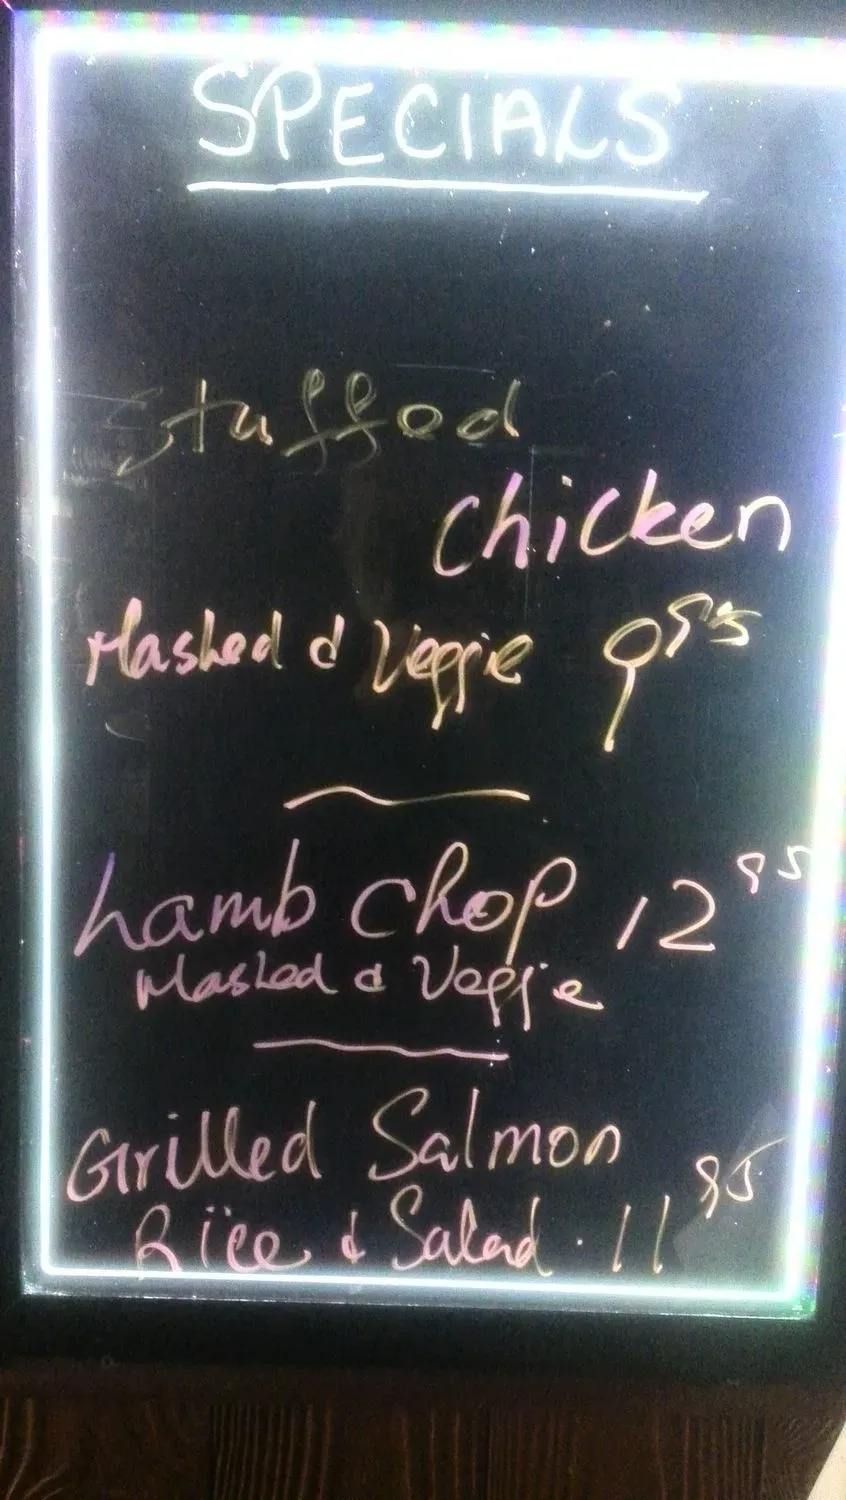 SPECIALS
Stuffed
Chicken
Mashed & Veggie 9 95
Lamb Chop 12 95
Mashed & Veggie
Grilled Salmon
Rice & Salad . 11 95